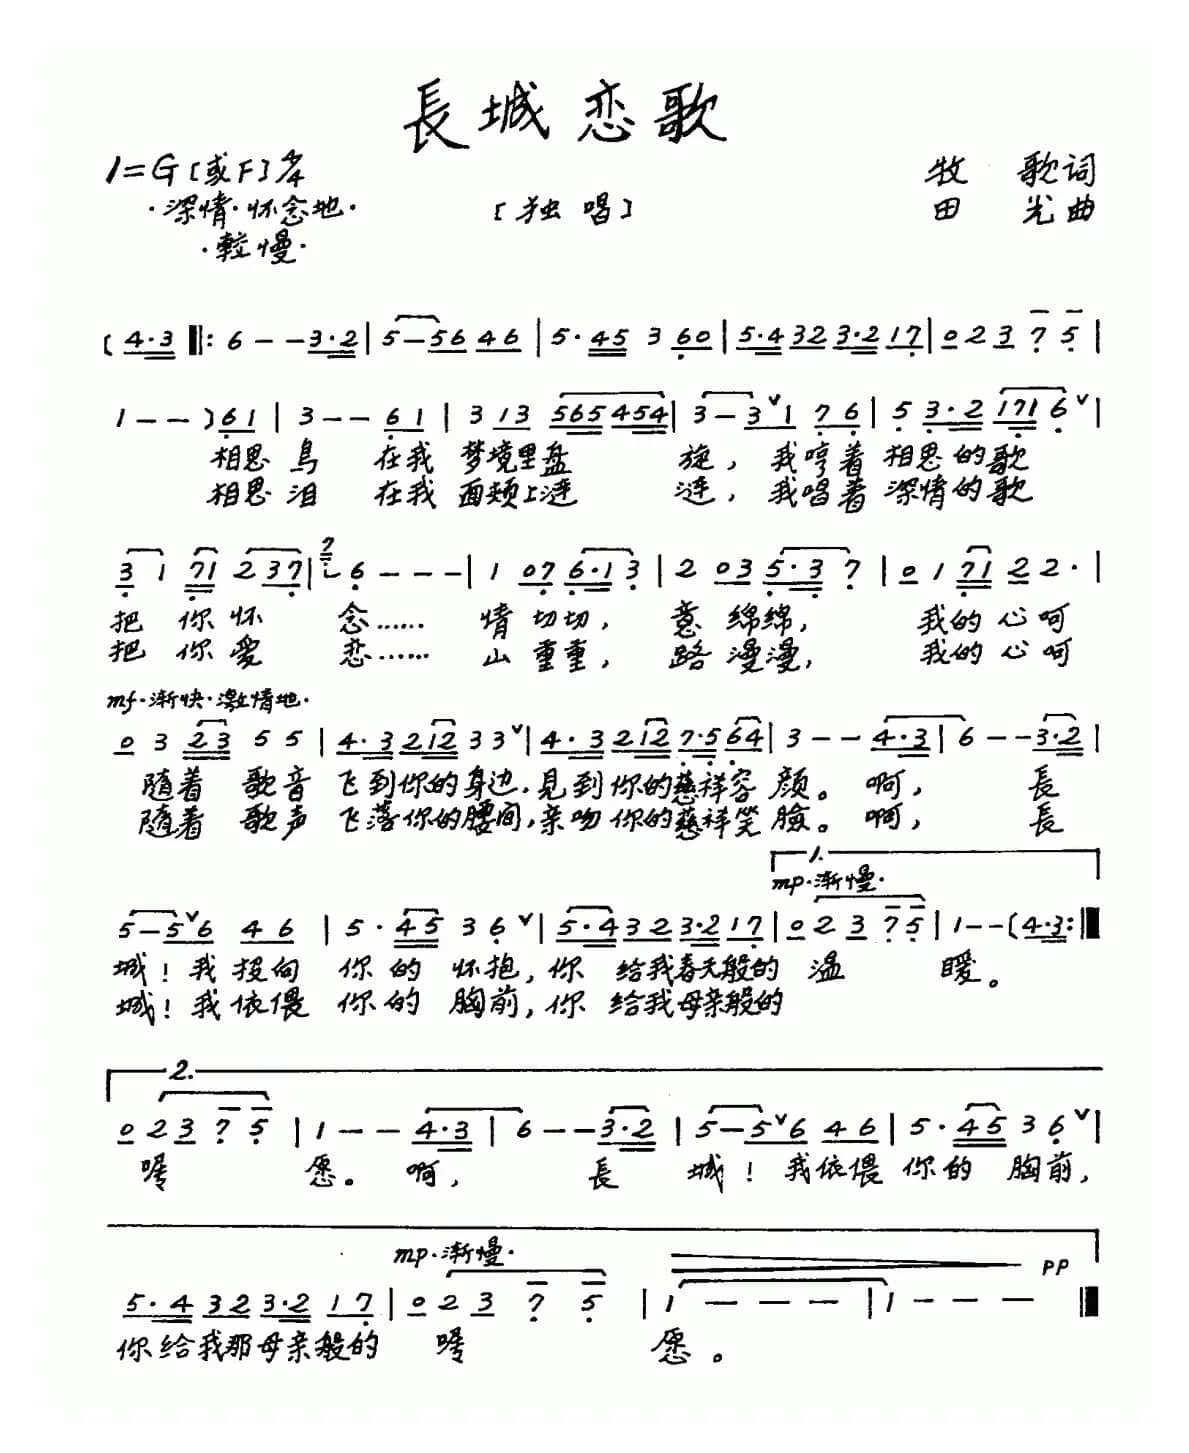 長城恋歌
1=G[或F]4/4
牧 歌词
·深情·怀念地·
[独唱]
田 光曲
·較慢·
(4·3 ‖: 6 - - 3·2 | 5 - 5 6 4 6 | 5· 4 5 3 6 0 | 5·4 3 2 3·2 1 7 | 0 2 3 7 5 |
1 - - ) 6 1 | 3 - - 6 1 | 3 1 3 5 6 5 4 5 4 | 3 - 3 ∨ 1 7 6 | 5 3·2 1 7 1 6 ∨ |
相思鳥 在我 梦境里盘 旋，我哼着 相思的歌
相思泪 在我 面颊上涟 涟，我唱着 深情的歌
3 1 7 1 2 3 7 | 7 6 - - - | 1 0 7 6·1 3 | 2 0 3 5·3 7 | 0 1 7 1 2 2· |
把 你 怀 念…… 情 切切，意 绵绵，我的 心 呵
把 你 爱 恋…… 山 重重，路 漫漫，我的 心 呵
mf·渐快·激情地·
0 3 2 3 5 5 | 4·3 2 1 2 3 3 ∨ | 4·3 2 1 2 7·5 6 4 | 3 - - 4·3 | 6 - - 3·2 |
随着 歌音 飞到你的身边，見到你的慈祥容 颜。啊，長
随着 歌声 飞落你的腰间，亲吻你的慈祥笑 臉。啊，長
1.
mp·渐慢·
5 - 5 ∨ 6 4 6 | 5· 4 5 3 6 ∨ | 5·4 3 2 3·2 1 7 | 0 2 3 7 5 | 1 - - (4·3 :‖
城！我 投向 你 的 怀抱，你 给我春天般的 温 暖。
城！我 依偎 你 的 胸前，你 给我母亲般的
2.
0 2 3 7 5 | 1 - - 4·3 | 6 - - 3·2 | 5 - 5 ∨ 6 4 6 | 5· 4 5 3 6 ∨ |
嘱 愿。啊，長 城！我依偎 你的 胸前，
mp·渐慢·
pp
5·4 3 2 3·2 1 7 | 0 2 3 7 5 | 1 - - - | 1 - - - ‖
你给我那母亲般的 嘱 愿。